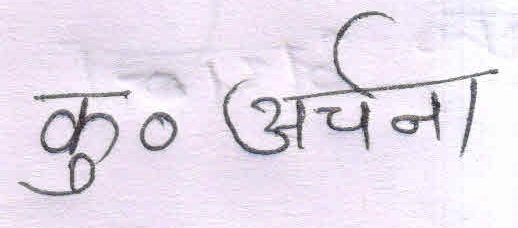 कु० अर्चना